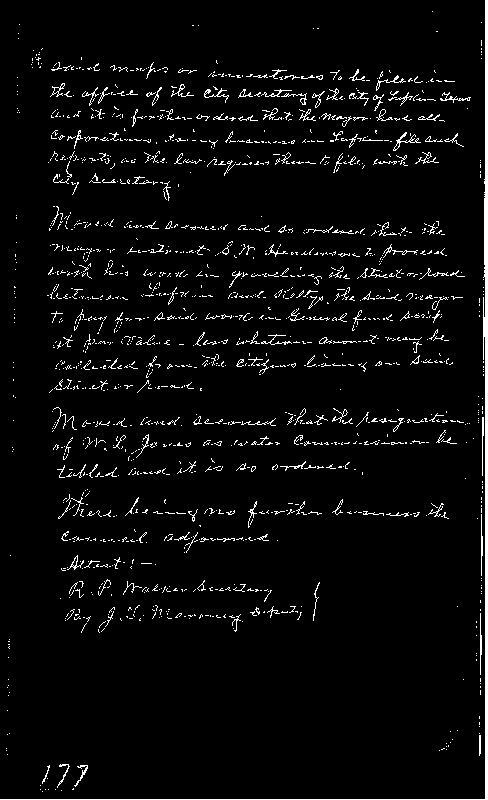 said maps or inventories to be filed in
the office of the City Secretary of the City of Lufkin Texas
and it is further ordered that the Mayor have all
Corporations, doing business in Lufkin, file such
reports, as the law requires them to file, with the
City Secretary.
Moved and second and so ordered that the
Mayor instruct S.W. Henderson to proceed
with his word in graveling the Street or road
between Lufkin and Keltys, the said Mayor
to pay for said word in General fund scrip
at par Value - less whatever amount may be
collected from the Citizens living on said
Street or road.
Moved and second that the resignation
of W. L. Jones as water Commissioner be
tabled and it is so ordered.
There being no further business the
council adjourned.
Attest: -
R. P. Walker Secretary
By J. T. Maroney Deputy
177